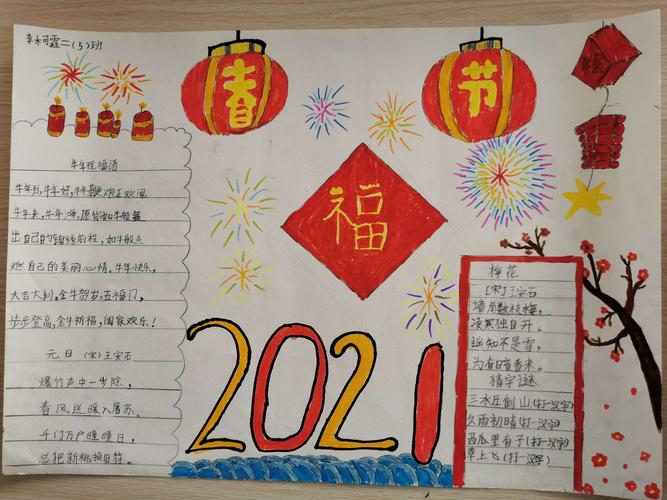 辛柯霏二(5)班
春节
福
福
牛年祝福语
牛年到,牛年好,牛鞭炮
牛年来,牛年
出自己的锦绣前程,如牛般点
燃自己的美丽心情,牛年快乐,
大吉大利,金牛贺岁,五福门,
步步登高,金牛祈福,阖家欢乐!
元日 (宋)王安石
爆竹声中一岁除,
春风送暖入屠苏。
千门万户曈曈日,
总把新桃换旧符。
2021
梅花
[宋]王安石
墙角数枝梅,
凌寒独自开。
遥知不是雪,
为有暗香来。
猜字谜
三水压倒山(打一汉字)
久雨初晴(打一汉字)
西瓜里有子(打一汉字)
草上飞(打一汉字)